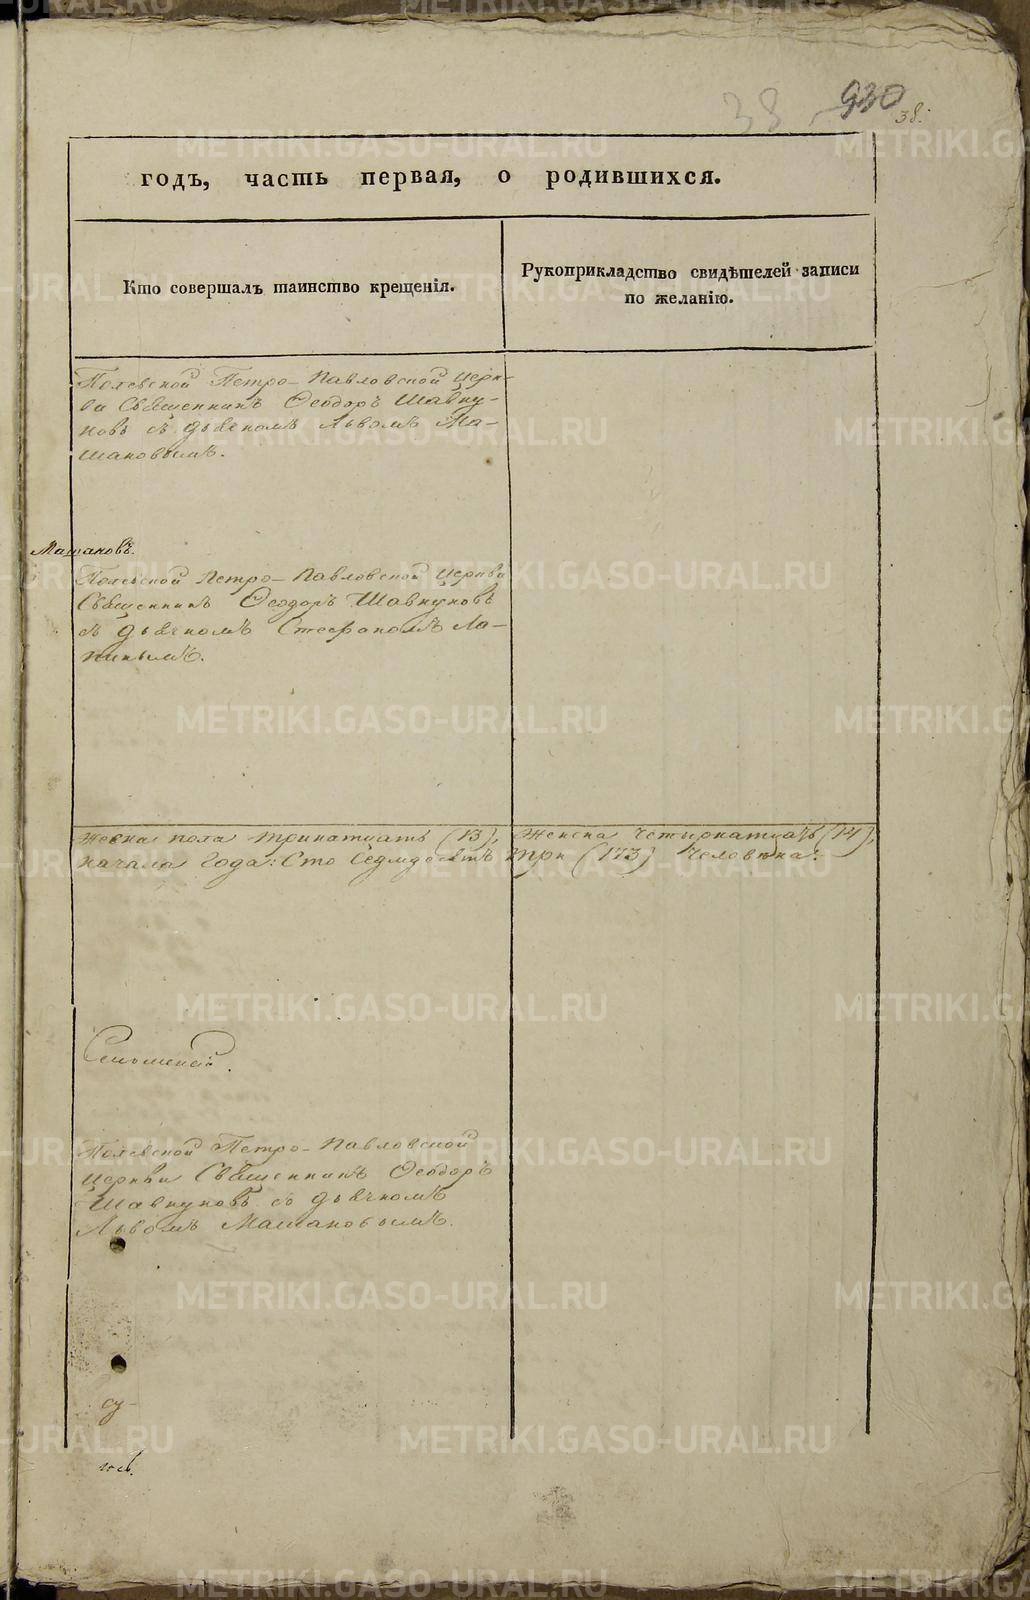 38
930
38.
годъ, часть первая, о родившихся.
Кто совершалъ таинство крещенія.
Рукоприкладство свидѣтелей записи
по желанію.
Полевской Петро-Павловской церк-
ви Священникъ Ѳеодоръ Шавку-
новъ съ дьячкомъ Львомъ Ма-
шановымъ.
Машановъ.
Полевской Петро-Павловской церкви
Священникъ Ѳеодоръ Шавкуновъ
съ дьячкомъ Стефаномъ Ла-
пинымъ.
Мужеска пола тринатцать (13), Женска четырнатцать (14),
начала года: Сто Седмдесятъ три (173) человѣка.
Полевской Петро-Павловской
церкви Священникъ Ѳеодоръ
Шавкуновъ съ дьячкомъ
Львомъ Машановымъ.
METRIKI.GASO-URAL.RU